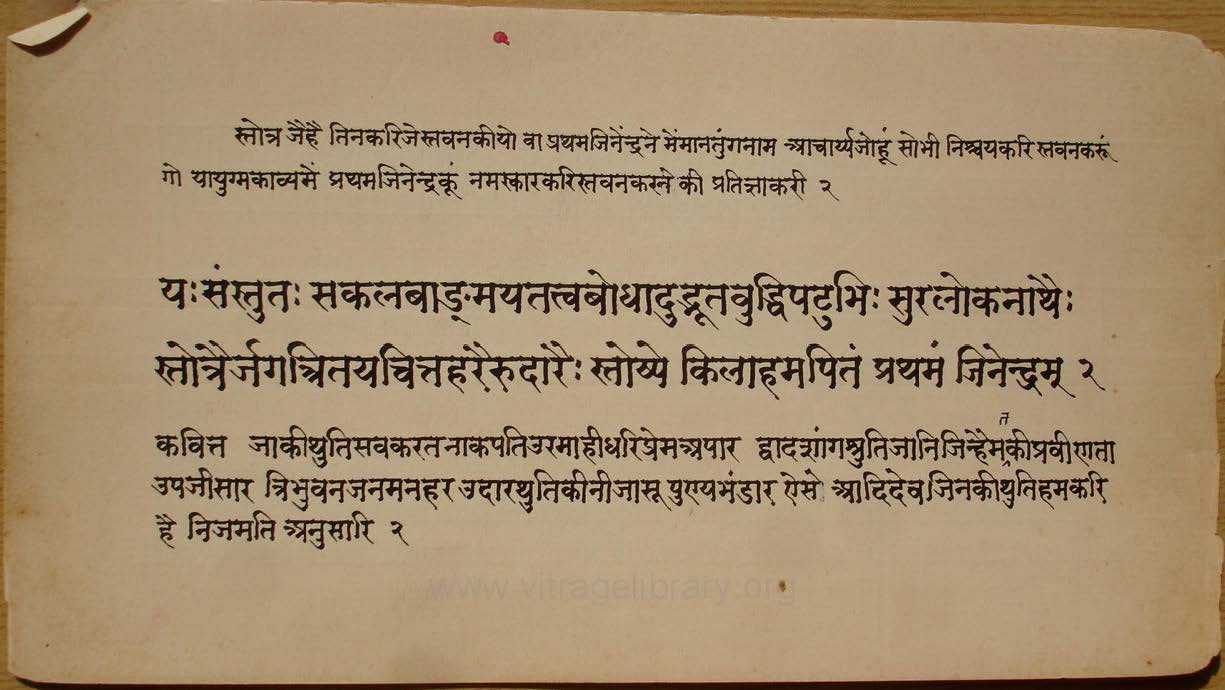 स्तोत्र जैहैं तिनकरिजेस्तवनकीयो वा प्रथमजिनेंन्द्रने मेंमानतुंगनाम आचार्य्यजोहूं सोभी निश्चयकरि स्तवनकरूं
गो यायुग्मकाव्यमें प्रथमजिनेन्द्रकूं नमस्कारकरिस्तवनकरने की प्रतिज्ञाकरी २
यःसंस्तुतः सकलबाङ्मयतत्त्वबोधादुद्भूतवुद्धिपटुभिः सुरलोकनाथैः
स्तोत्रैर्जगत्रितयचित्तहरैरुदारैः स्तोय्ये किलाहमपितं प्रथमं जिनेन्द्रम् २
कवित्त जाकीथुतिसवकरतनाकपतिउरमाहीधरिप्रेमअपार द्वादशांगश्रुतिजानिजिन्हैमतकीप्रवीणता
उपजीसार त्रिभुवनजनमनहर उदारथुतिकीनीजासू पुण्यभंडार ऐसे आदिदेवजिनकीथुतिहमकरि
है निजमति अनुसारि २
www.vitragelibrary.org